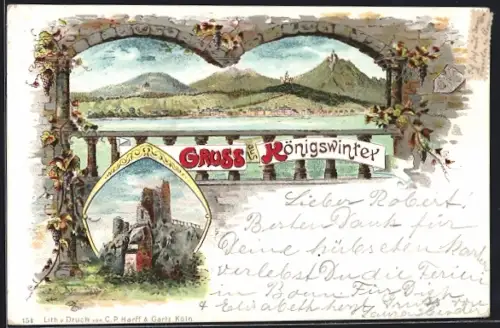 Gruss aus Königswinter
Lieber Robert!
Besten Dank für
Deine hübschen Karten
verlebst Du die Ferien
in Bonn Für Dich
& Elisabeth herzl. Grüsse
154 Lith. u. Druck von C. P. Harff & Gartz, Köln.